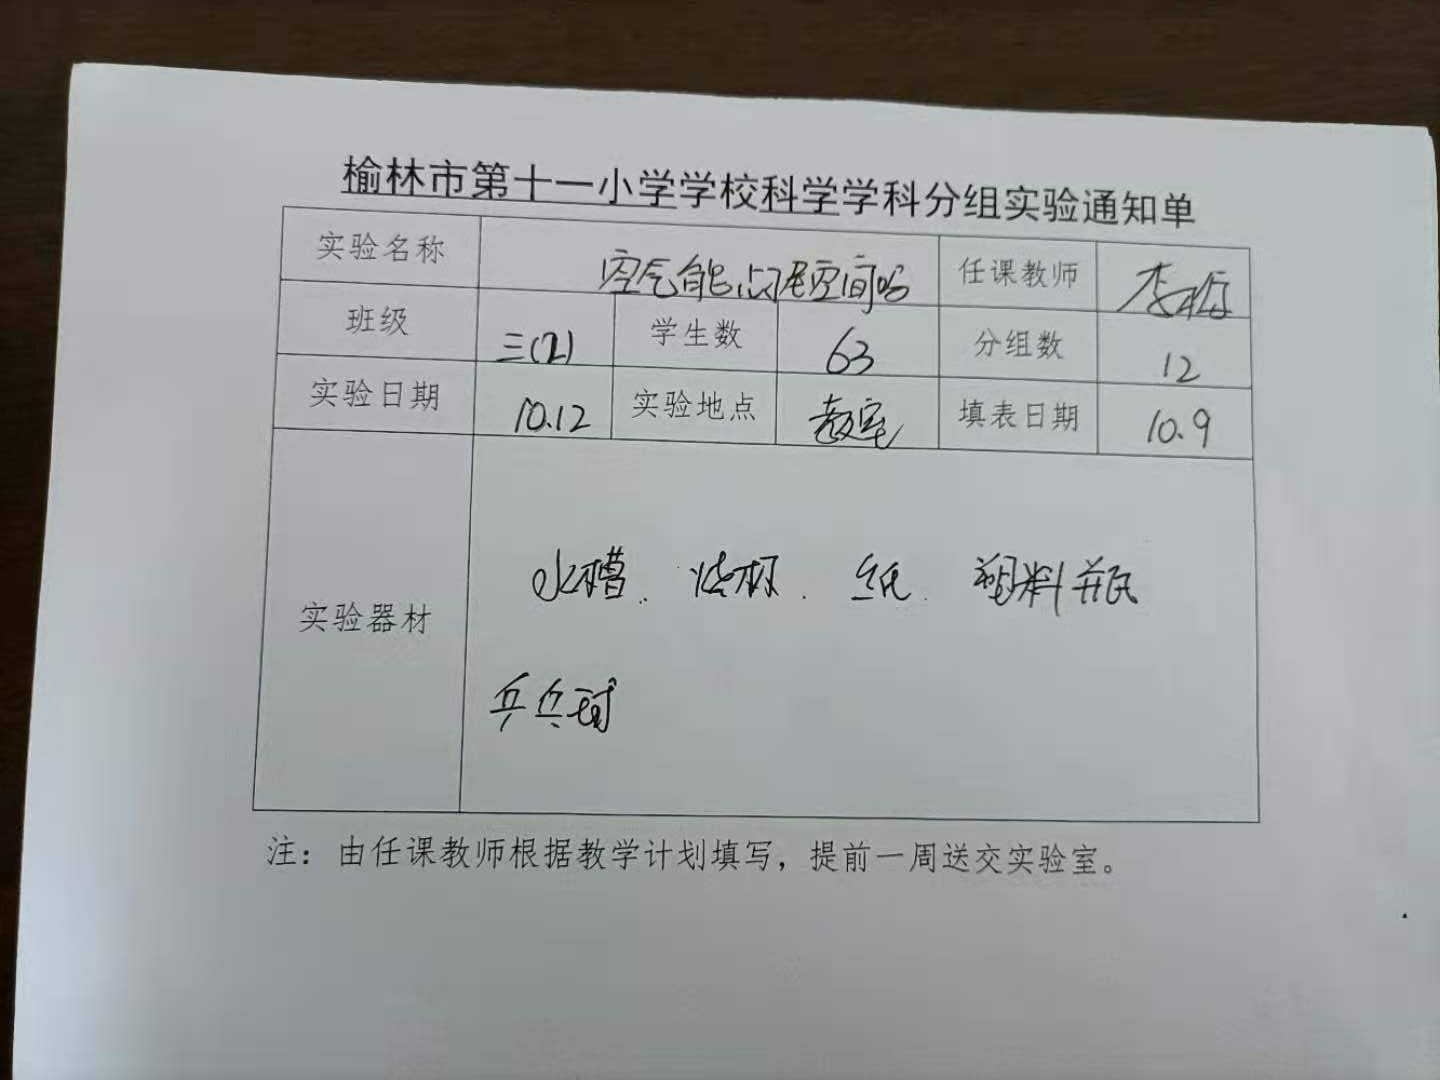 榆林市第十一小学学校科学学科分组实验通知单
实验名称 空气能占据空间吗 任课教师 李
班级 三(2) 学生数 63 分组数 12
实验日期 10.12 实验地点 教室 填表日期 10.9
实验器材 水槽、烧杯、纸、塑料瓶
乒乓球
注：由任课教师根据教学计划填写，提前一周送交实验室。